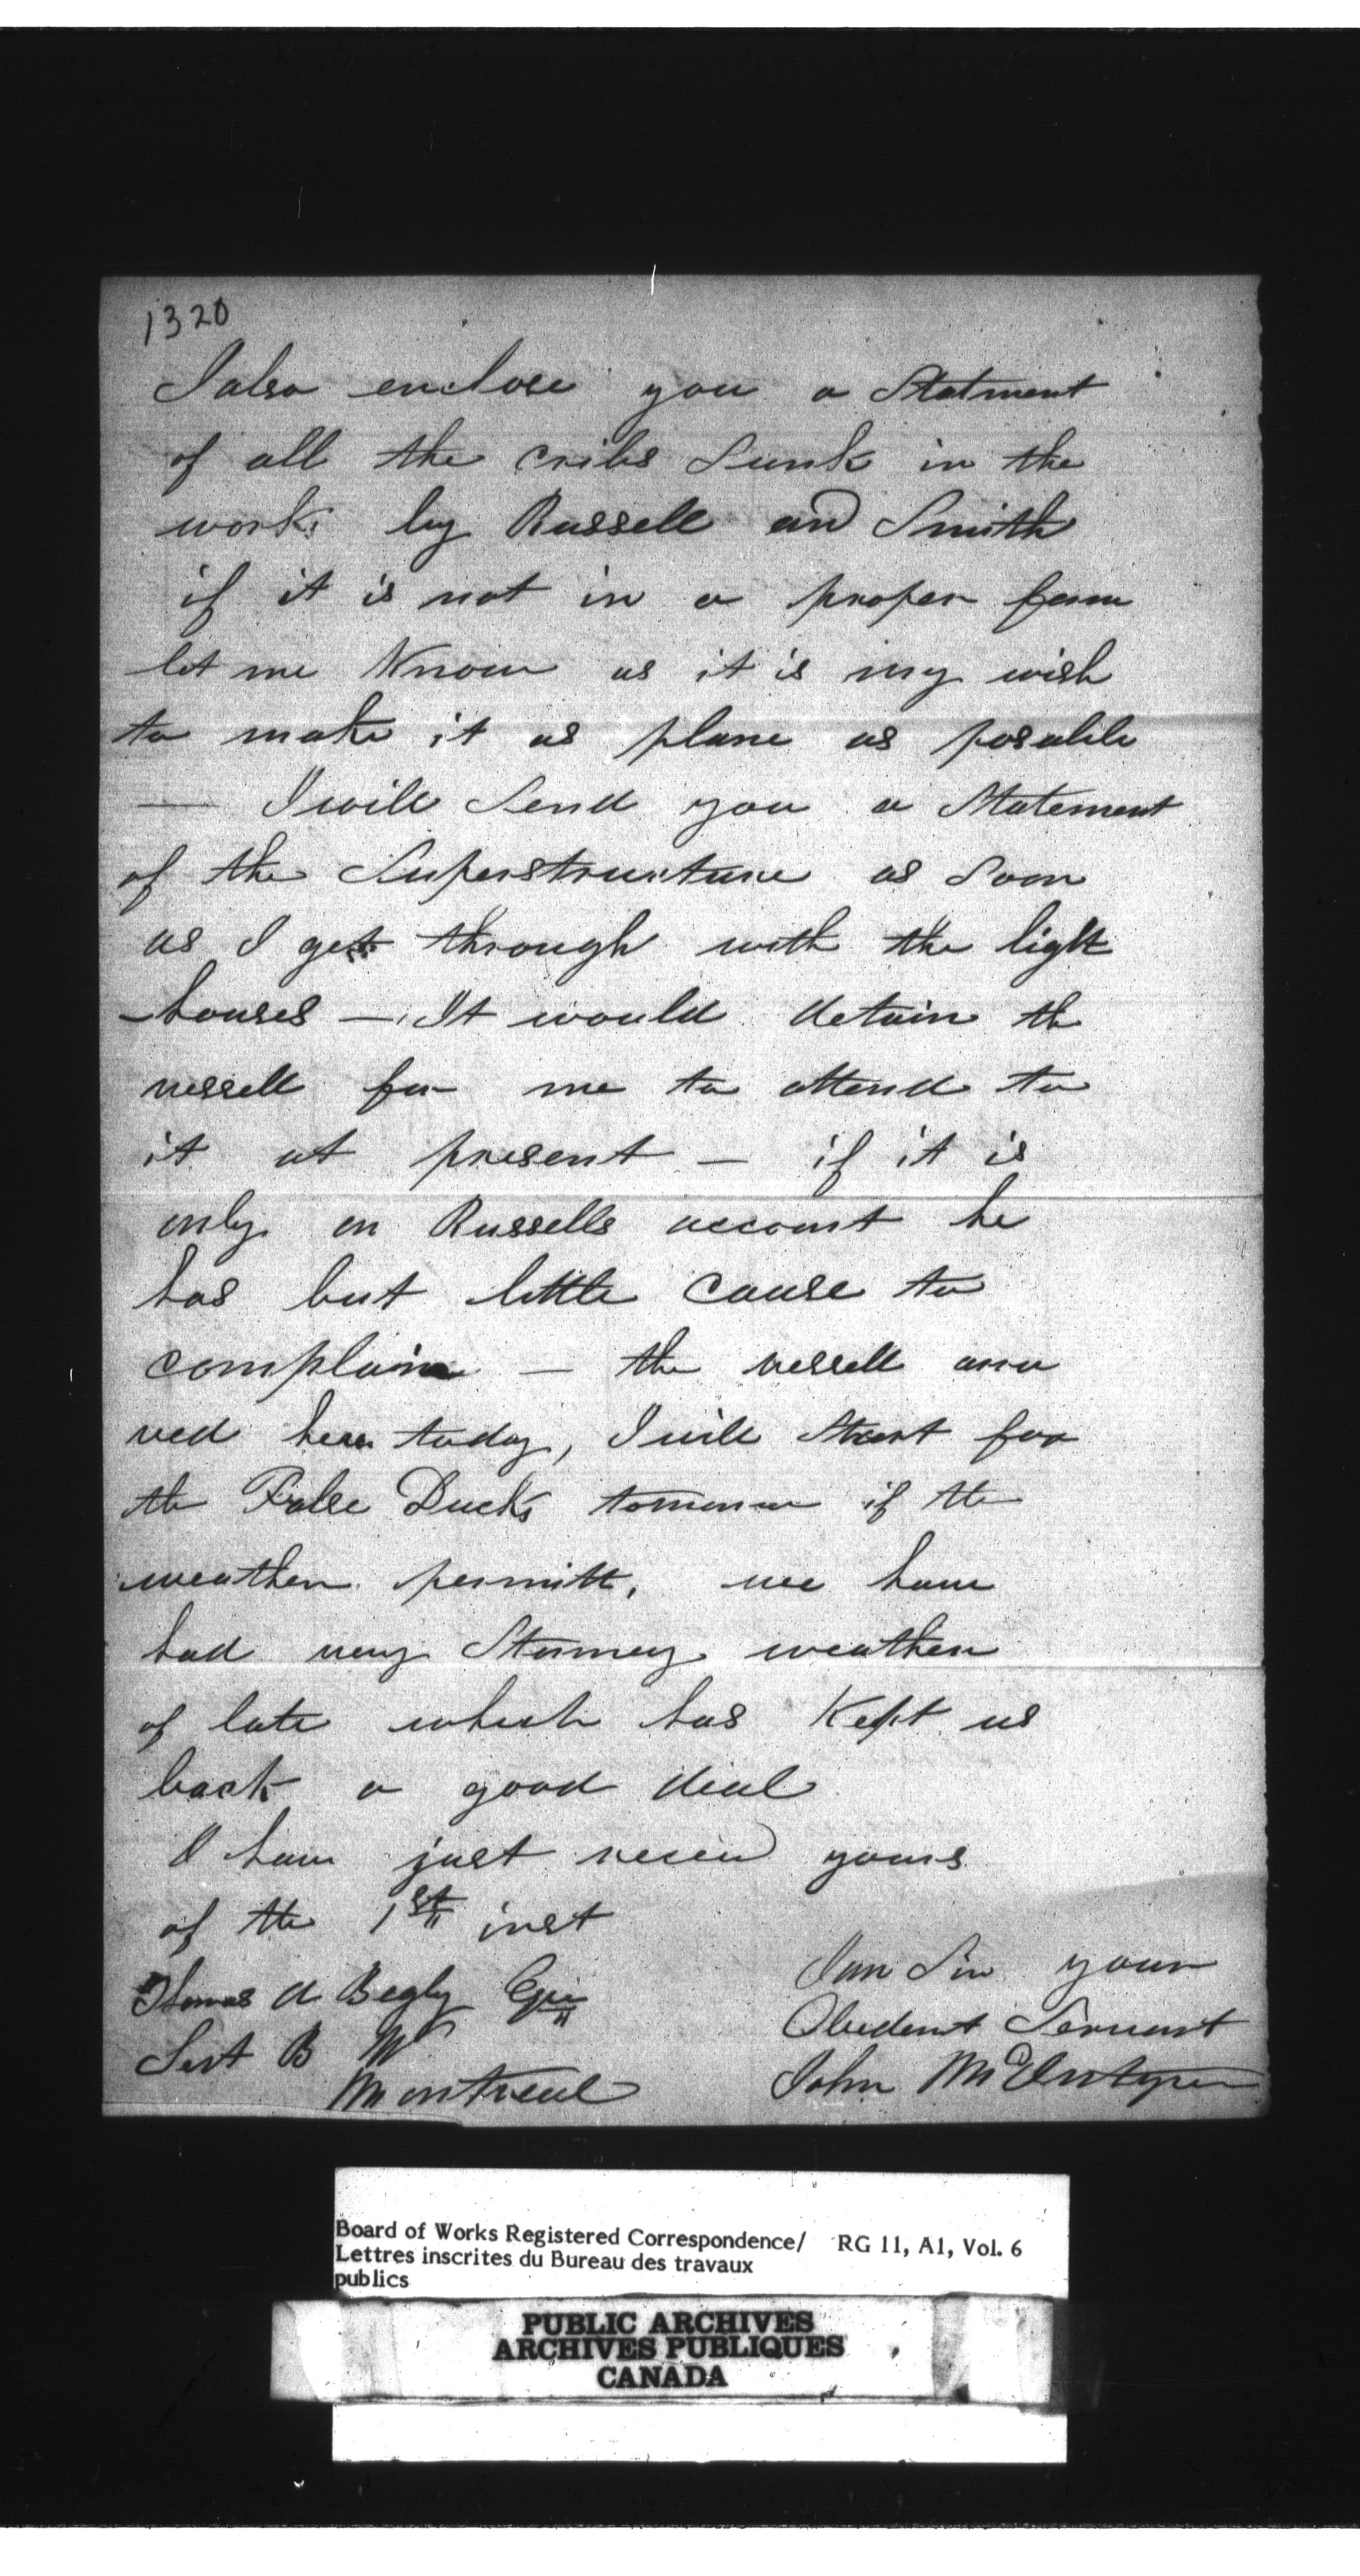 1320
I also enclose you a Statment
of all the cribs Sunk in the
works by Russell and Smith
if it is not in a proper form
let me Know as it is my wish
to make it as plane as posable
— I will Send you a Statement
of the Superstructure as Soon
as I get through with the light
-houses — It would detain the
vessell for me to attend to
it at present — if it is
only on Russells account he
has but little cause to
complain — the vessell arri
ved here today, I will Start for
the False Ducks tomorrow if the
weather permitt, we have
had very Stormey weather
of late which has Kept us
back a good deal
I have just receivd yours
of the 1st inst
I am Sir your
Obedent Servent
John McEntyre
Thomas A Begly Eqr
Sect B W
Montreal
Board of Works Registered Correspondence/ RG 11, A1, Vol. 6
Lettres inscrites du Bureau des travaux
publics
PUBLIC ARCHIVES
ARCHIVES PUBLIQUES
CANADA